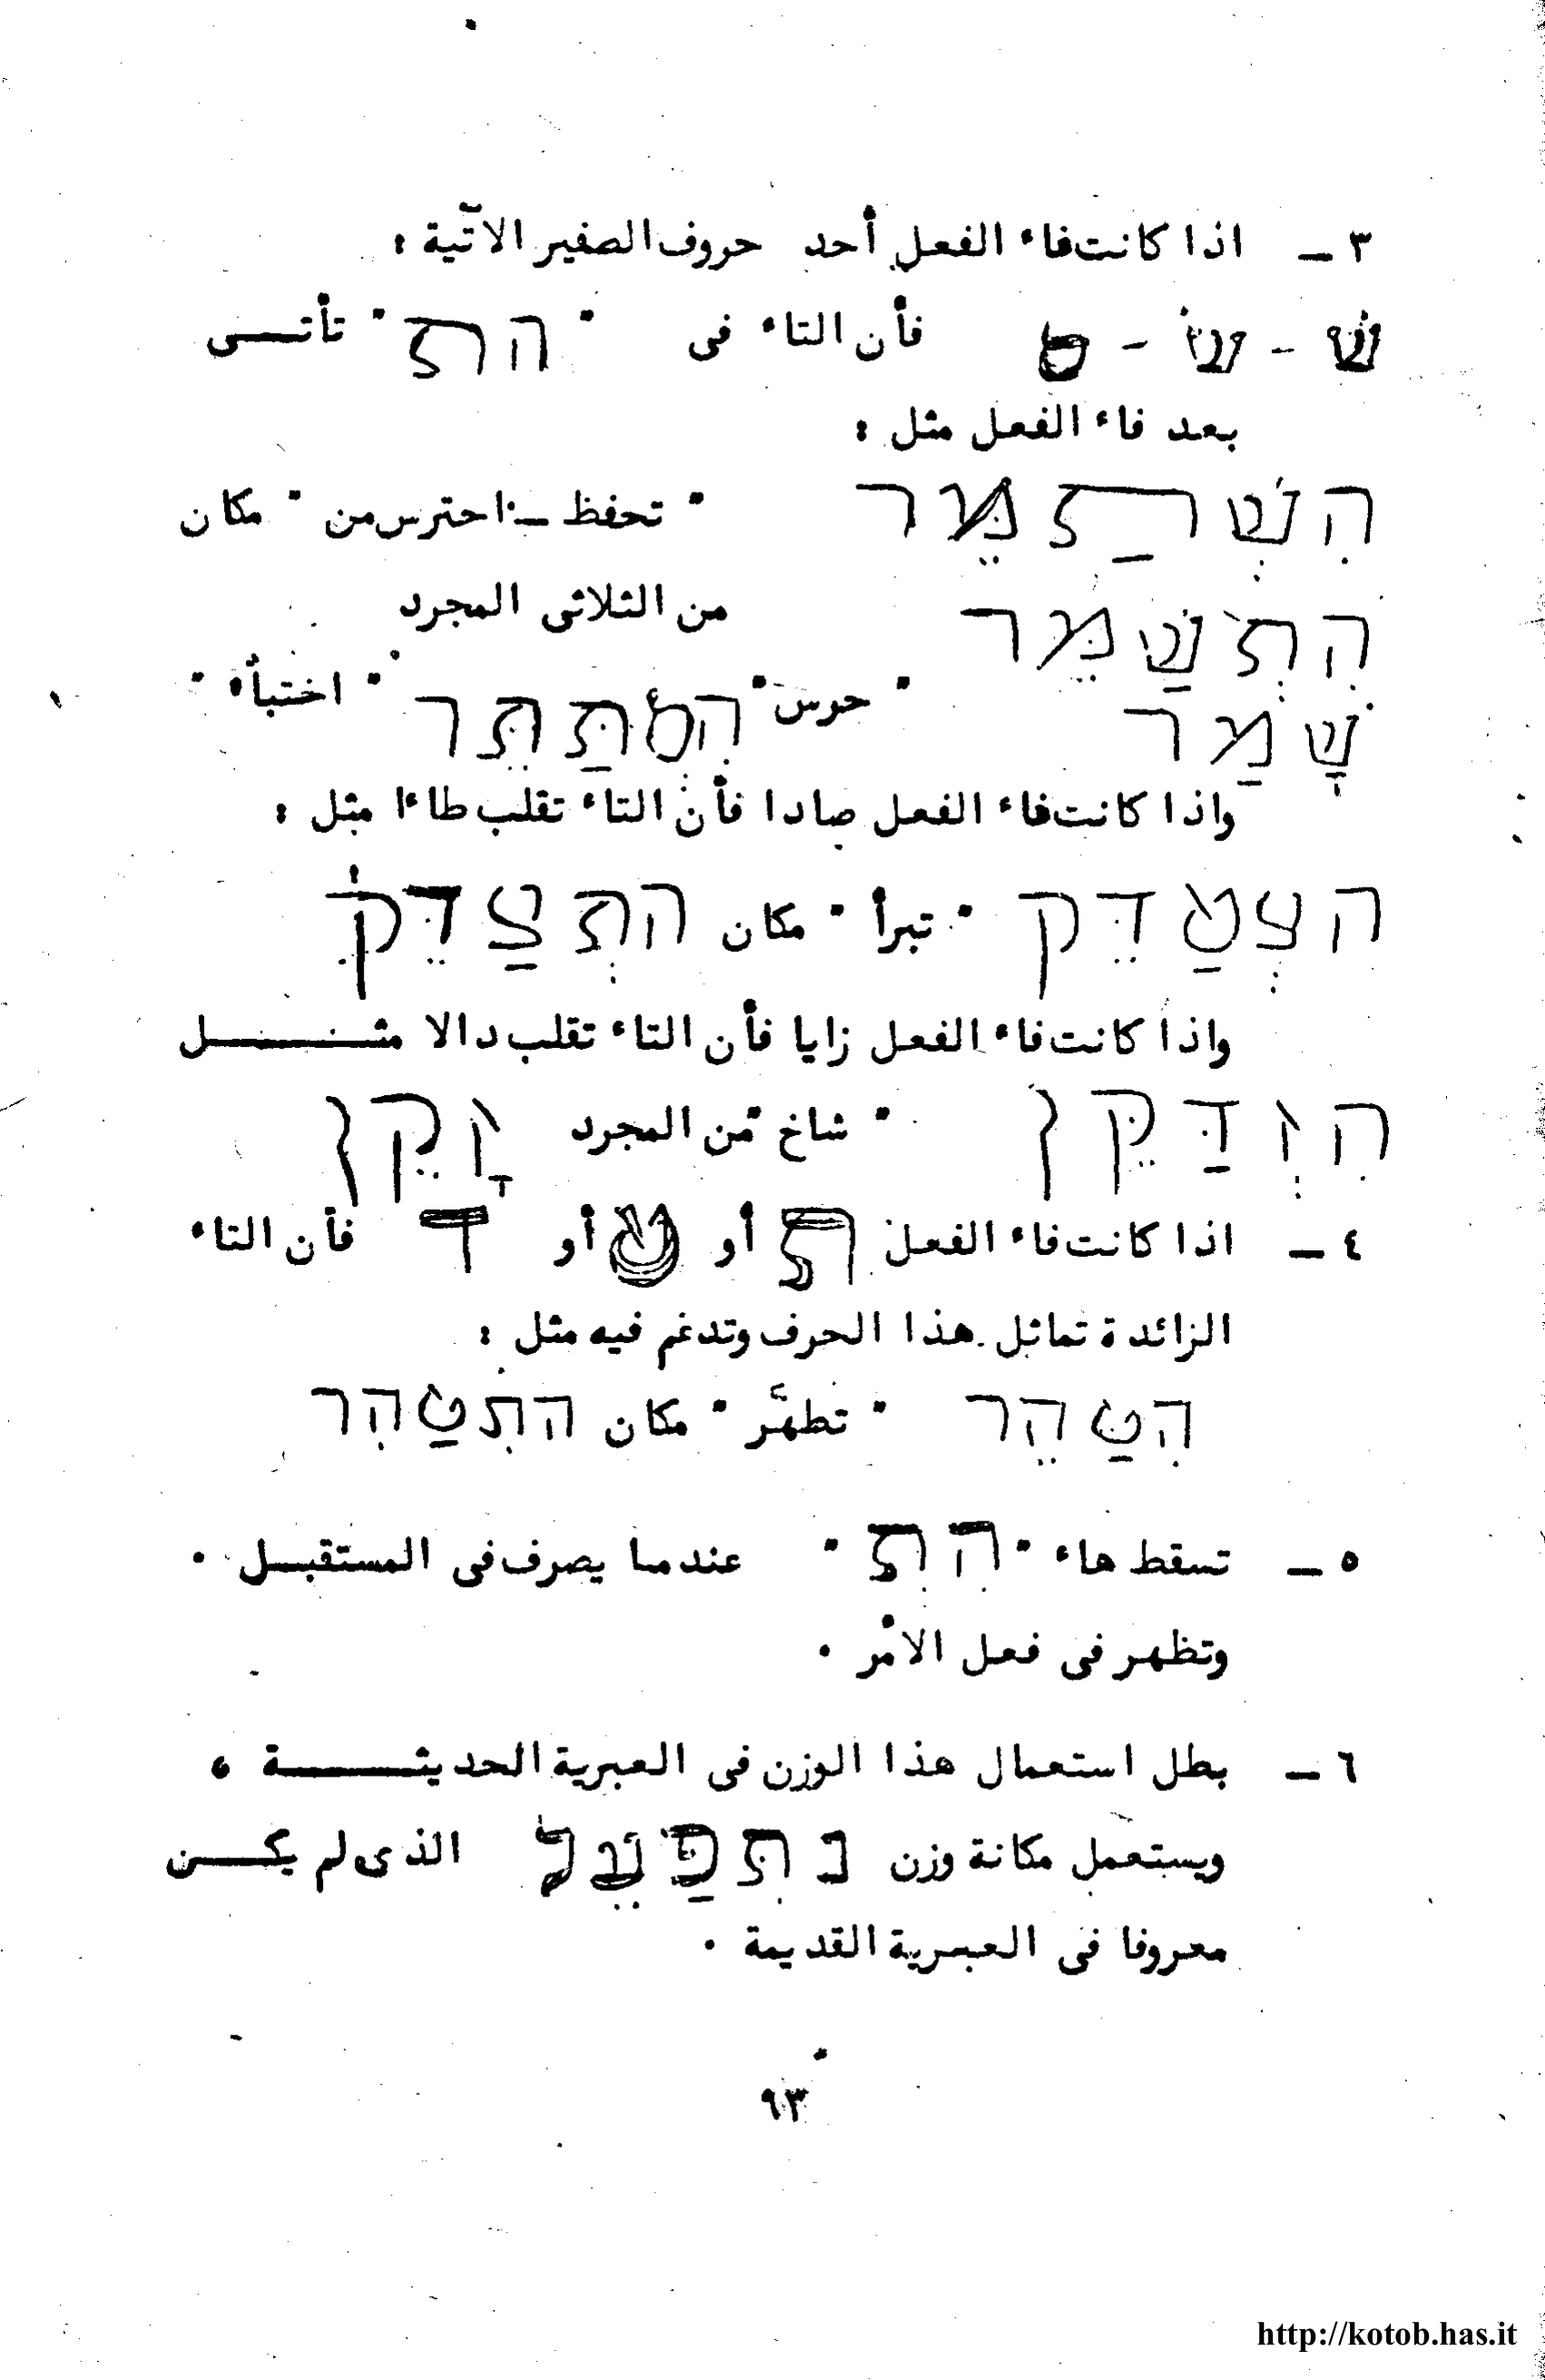 ٣ ـ اذا كانت فاء الفعل أحد حروف الصفير الآتية :
שׁ - שׂ - ס فأن التاء فى " הת " تأتــى
بعد فاء الفعل مثل :
הִשְׁתַּמֵּר " تحفظ ـ احترس من " مكان
הִתְשַׁמֵּר من الثلاثى المجرد
שָׁמַר " حرس " הִסְתַּתֵּר " اختبأ "
واذا كانت فاء الفعل صادا فأن التاء تقلب طاءا مثل :
הצְטַדֵּק " تبرأ " مكان התְצַדֵּק
واذا كانت فاء الفعل زايا فأن التاء تقلب دالا مثــل
הִזְדַּקֵּן " شاخ " من المجرد זָקֵן
٤ ـ اذا كانت فاء الفعل ת أو ט أو ד فأن التاء
الزائدة تماثل هذا الحرف وتدغم فيه مثل :
הִטַּהֵר " تطهّر " مكان התִטַהִר
٥ ـ تسقط هاء " הִתְ " عندما يصرف فى المستقبل .
وتظهر فى فعل الأمر .
٦ ـ بطل استعمال هذا الوزن فى العبرية الحديثــة ،
ويستعمل مكانة وزن נִתְפַּעֵל الذى لم يكــن
معروفا فى العبرية القديمة .
٩٣
http://kotob.has.it